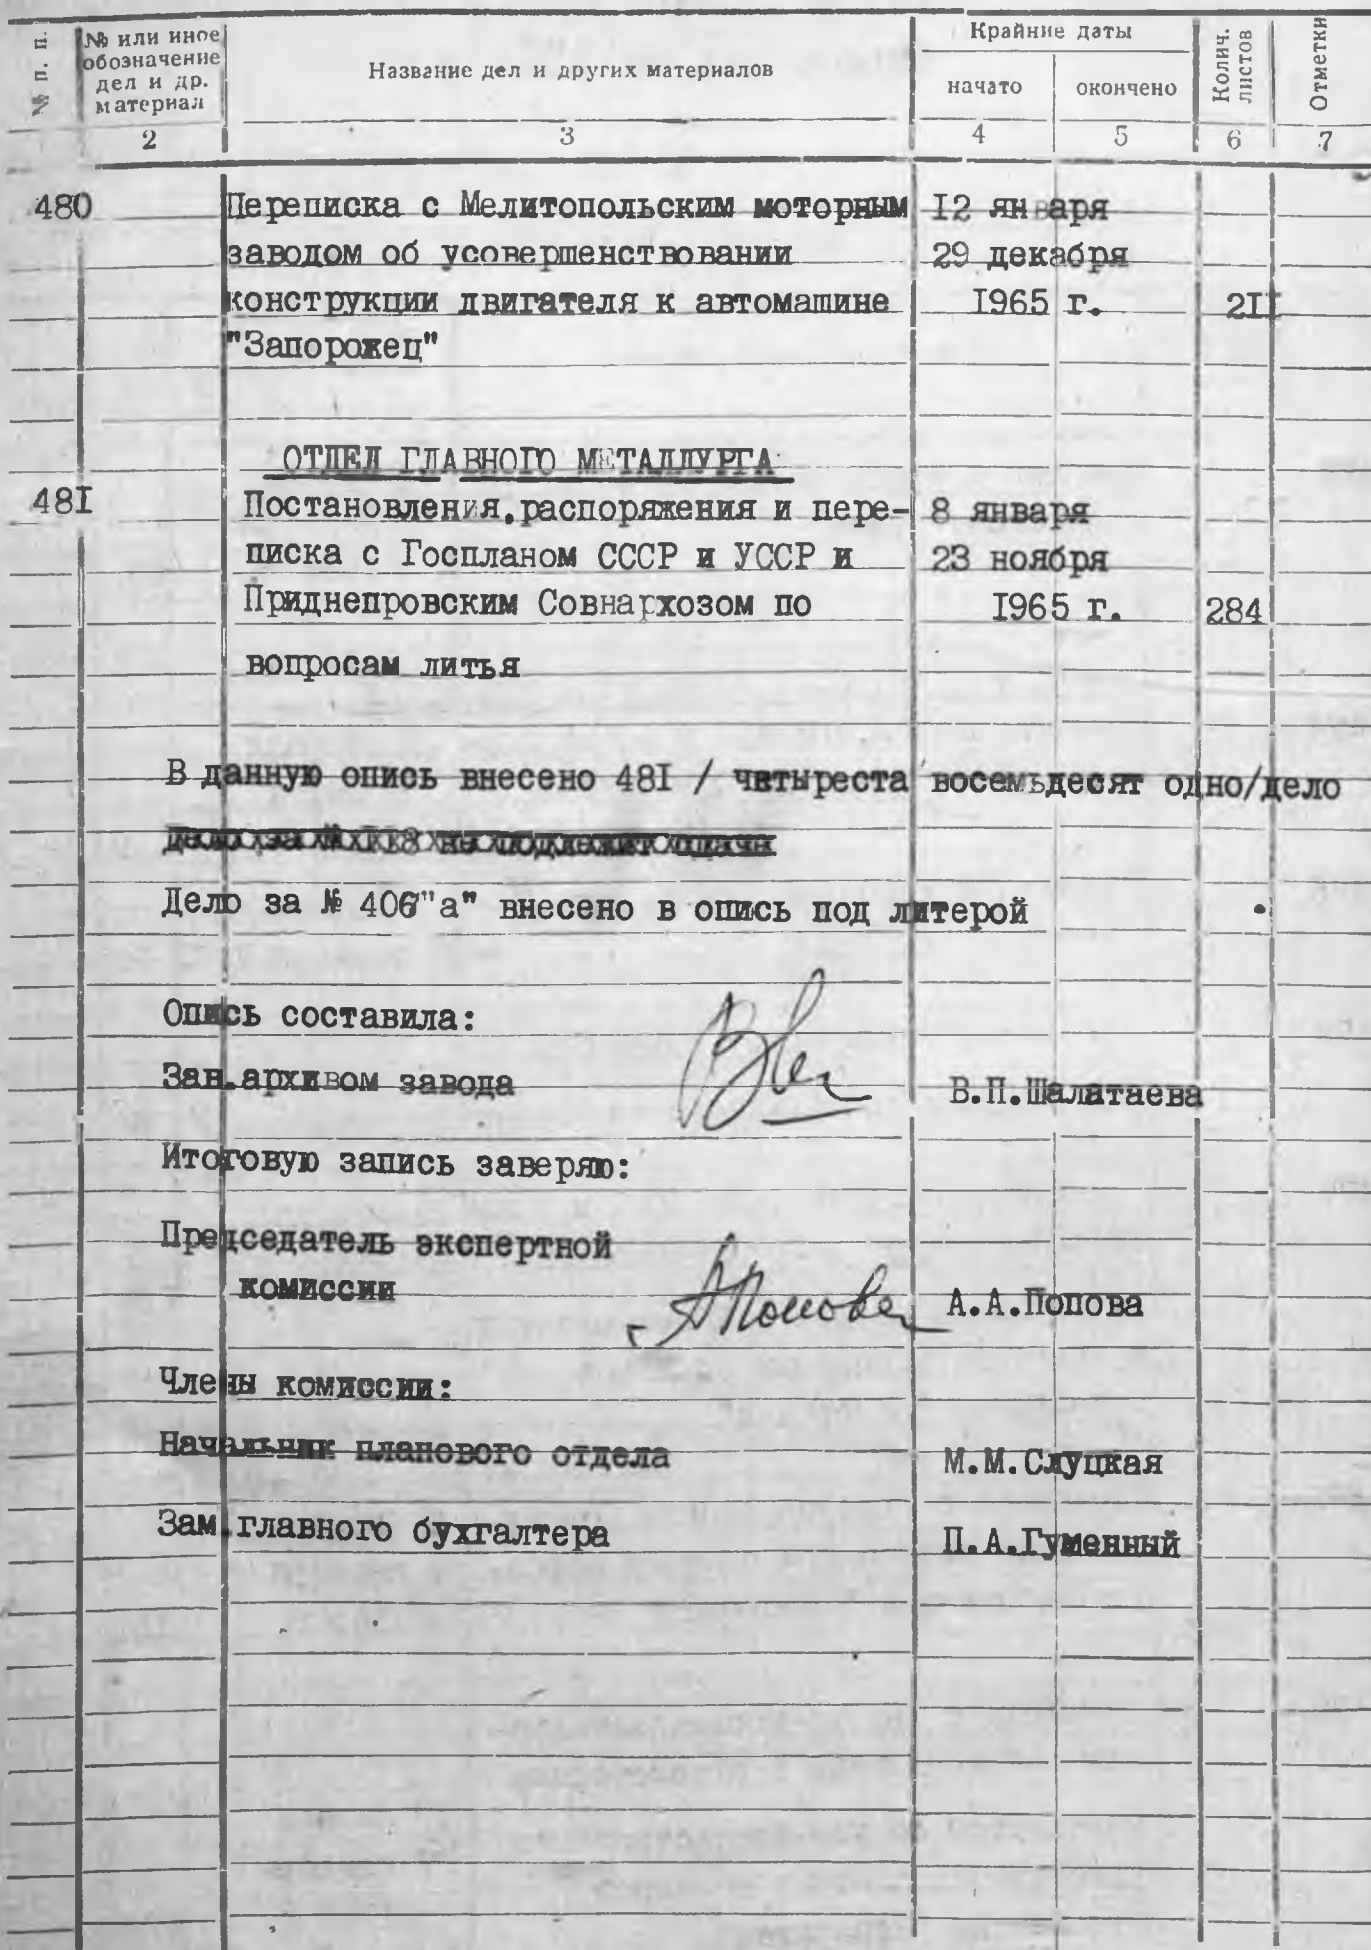 № п. п.
№ или иное обозначение дел и др. материал
Название дел и других материалов
Крайние даты
начато
окончено
Колич. листов
Отметки
2 3 4 5 6 7
480 Переписка с Мелитопольским моторным 12 января
заводом об усовершенствовании 29 декабря
конструкции двигателя к автомашине I965 г. 2II
"Запорожец"
ОТДЕЛ ГЛАВНОГО МЕТАЛЛУРГА
48I Постановления,распоряжения и пере- 8 января
писка с Госпланом СССР и УССР и 23 ноября
Приднепровским Совнархозом по I965 г. 284
вопросам литья
В данную опись внесено 48I / четыреста восемьдесят одно/дело
Дело за № 406"а" внесено в опись под литерой
Опись составила:
Зав.архивом завода В.П.Шалатаева
Итоговую запись заверяю:
Председатель экспертной
комиссии АПопова А.А.Попова
Члены комиссии:
Начальник планового отдела М.М.Слуцкая
Зам.главного бухгалтера П.А.Гуменный